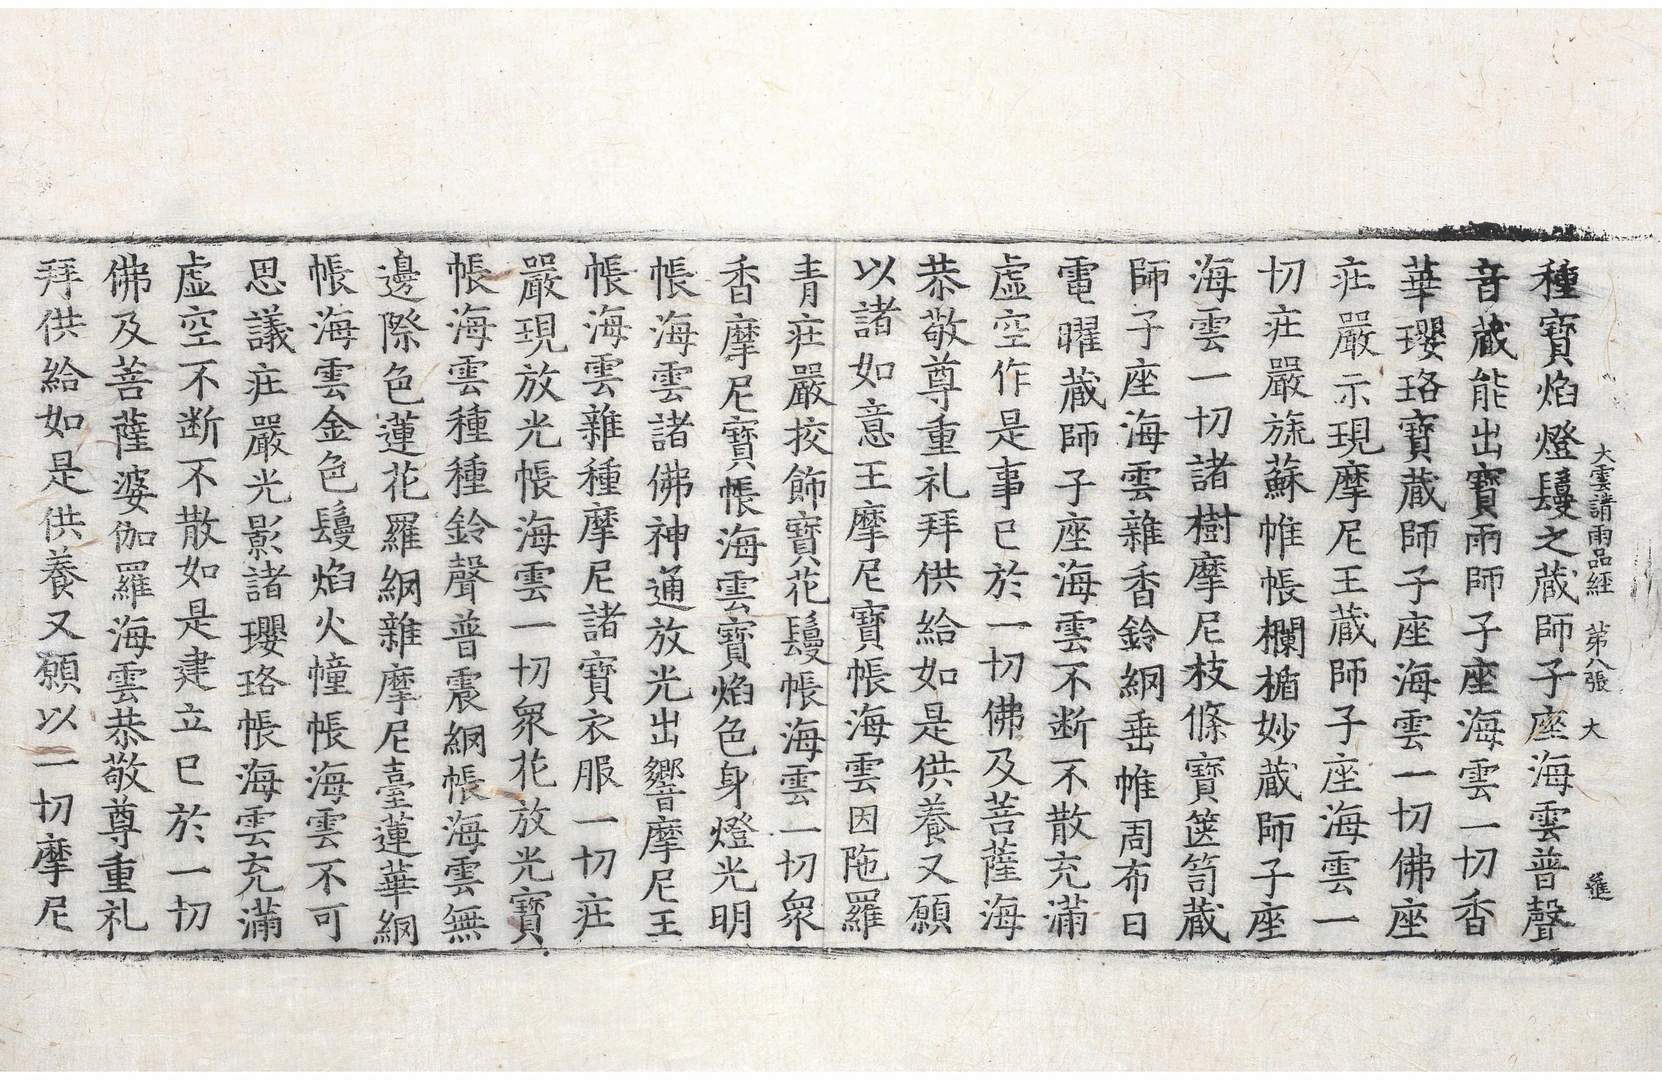 大雲請雨品経 第八張 大
種寶焰燈鬘之蔵師子座海雲普聲
音蔵能出寶雨師子座海雲一切香
華瓔珞寶蔵師子座海雲一切佛座
荘嚴示現摩尼王蔵師子座海雲一
切荘嚴旒蘇帷帳欄楯妙蔵師子座
海雲一切諸樹摩尼枝條寶篋笥蔵
師子座海雲雜香鈴網垂帷周布日
電曜蔵師子座海雲不断不散充滿
虛空作是事已於一切佛及菩薩海
恭敬尊重礼拜供給如是供養又願
以諸如意王摩尼寶帳海雲因陁羅
青荘嚴挍飾寶花鬘帳海雲一切衆
香摩尼寶帳海雲寶焰色身燈光明
帳海雲諸佛神通放光出響摩尼王
帳海雲雜種摩尼諸寶衣服一切荘
嚴現放光帳海雲一切衆花放光寶
帳海雲種種鈴聲普震網帳海雲無
邊際色蓮花羅網雜摩尼臺蓮華網
帳海雲金色鬘焰火幢帳海雲不可
思議荘嚴光影諸瓔珞帳海雲充滿
虛空不断不散如是建立已於一切
佛及菩薩婆伽羅海雲恭敬尊重礼
拜供給如是供養又願以一切摩尼